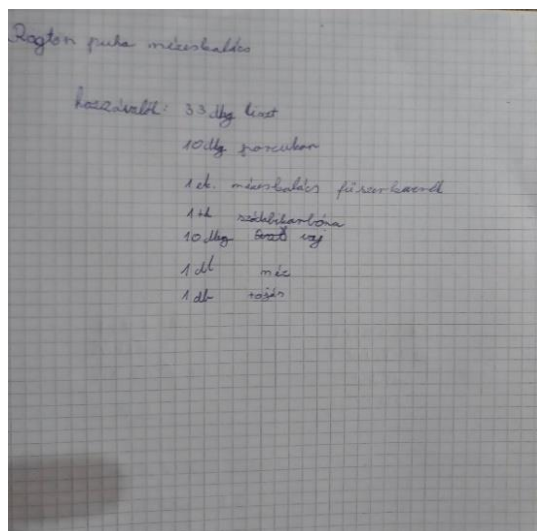 Rögtön puha mézeskalács
hozzávalók: 33 dkg liszt
10 dkg porcukor
1 ek. mézeskalács fűszerkeverék
1 tk szódabikarbóna
10 dkg vaj
1 dl méz
1 db tojás